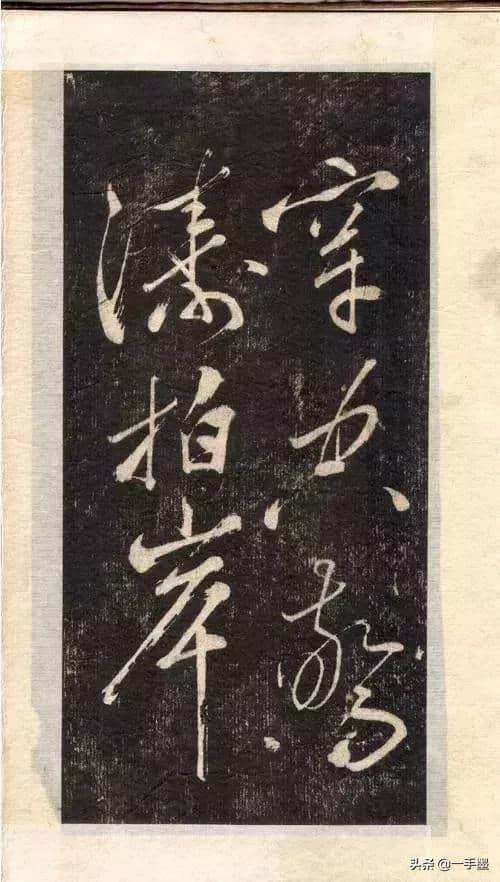 穿空驚
濤拍岸
头条 @一手墨